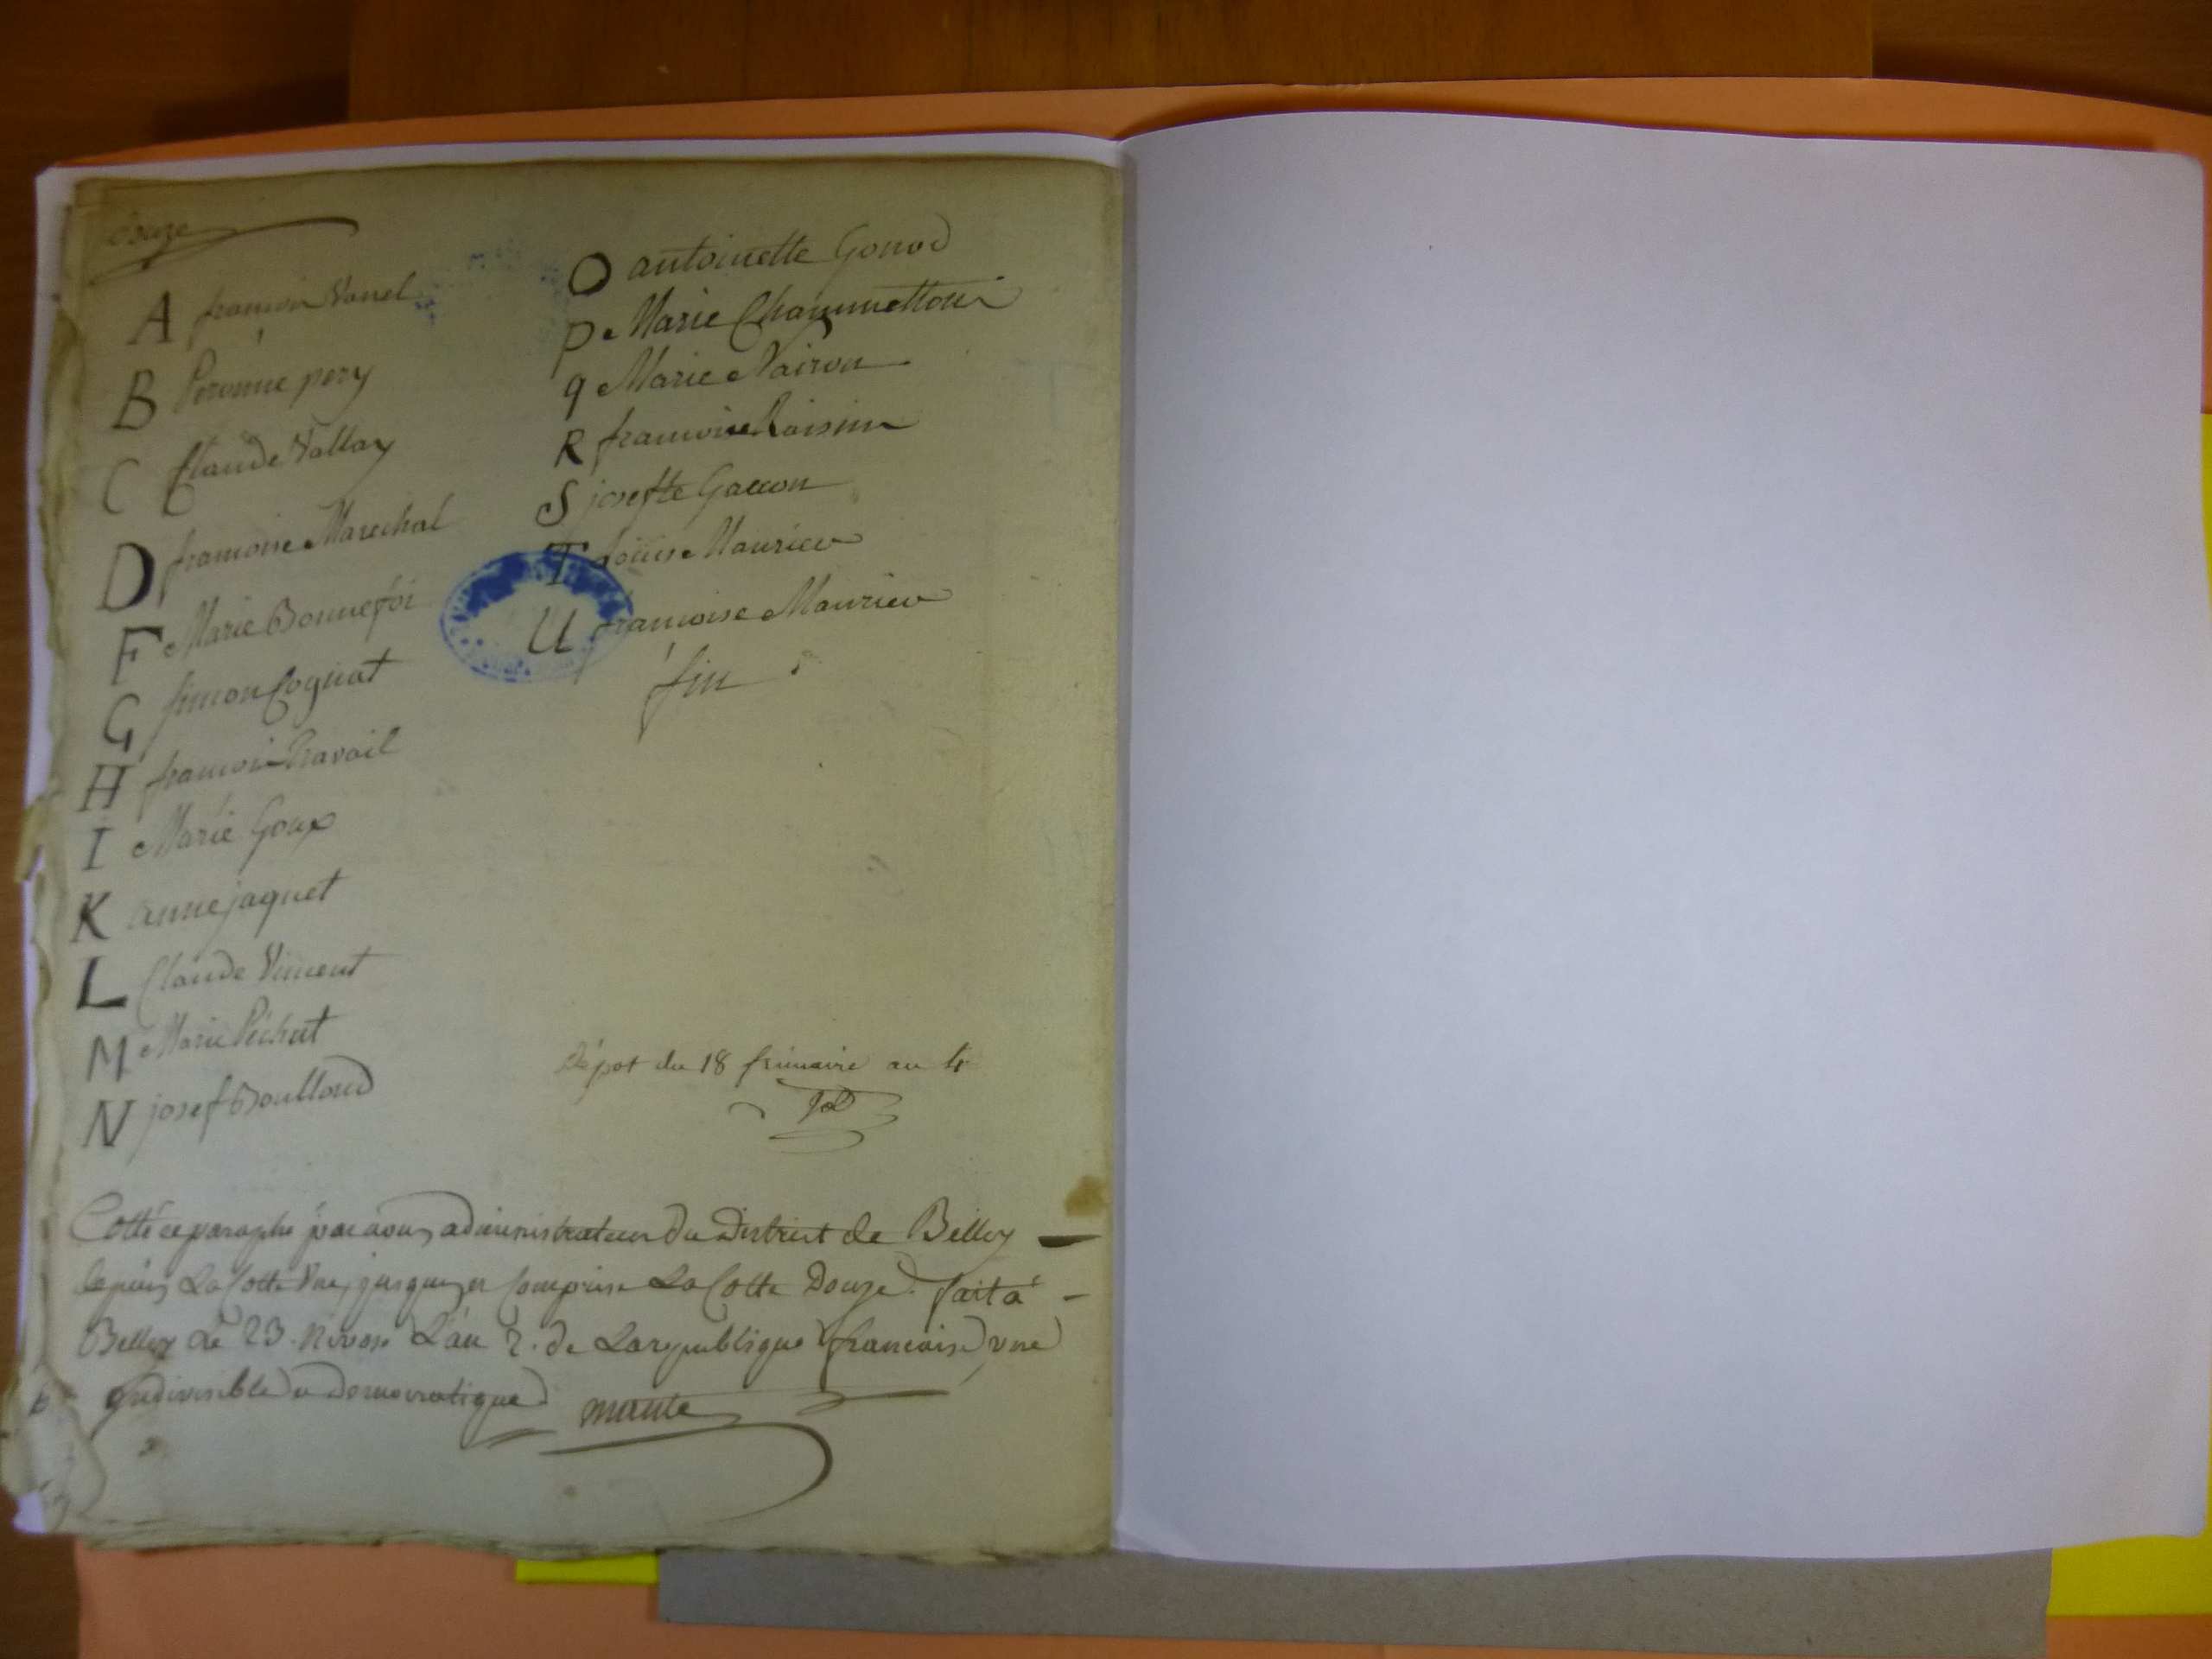 Douze
A francois Vanel
B Peronne pery
C Claude Vallay
D francoise Marechal
F Marie Bonnefoi
G simon Cognat
H francois Travail
I Marie Goux
K anne jaquet
L Claude Vincent
M Marie Pichut
N josef Boulloud
O antoinette Gonod
P Marie
q Marie Nairon
R francoise Roisin
S josefte Gaccon
T Louise Maurier
U francoise Maurier
fin
Dépot du 18 frimaire an 4
Cotté et paraphé par nous administrateur du District de Belley
depuis La Cotte Une jusques et Comprise La Cotte Douze. fait a
Belley Le 23 Nivose L'an 2. de La republique francaise une
indivisible et democratique